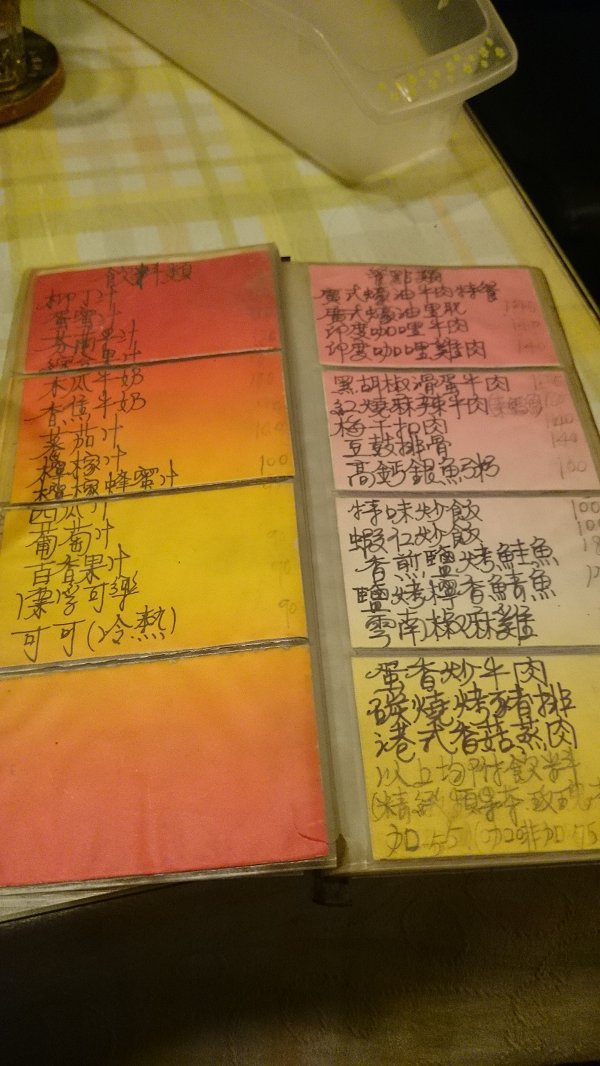 飲料類
柳丁汁
蜜
木瓜牛奶
香蕉牛奶
蕃茄汁
檸檬汁 100
檸檬蜂蜜汁
西瓜汁
葡萄汁
百香果汁
漂浮可樂
可可(冷熱) 90
餐點類
廣式蠔油牛肉特餐
廣式蠔油里肌
印度咖哩牛肉
印度咖哩雞肉 140
黑胡椒滑蛋牛肉
紅燒麻辣牛肉
梅干扣肉 140
豆鼓排骨 140
高鈣銀魚粥 100
特味炒飯 100
蝦仁炒飯 100
香煎鹽烤鮭魚
鹽烤檸香鯖魚
雲南椒麻雞
蛋香炒牛肉
碳燒烤豬排
港式香菇蒸肉
以上均附飲料
加55 (咖啡加75